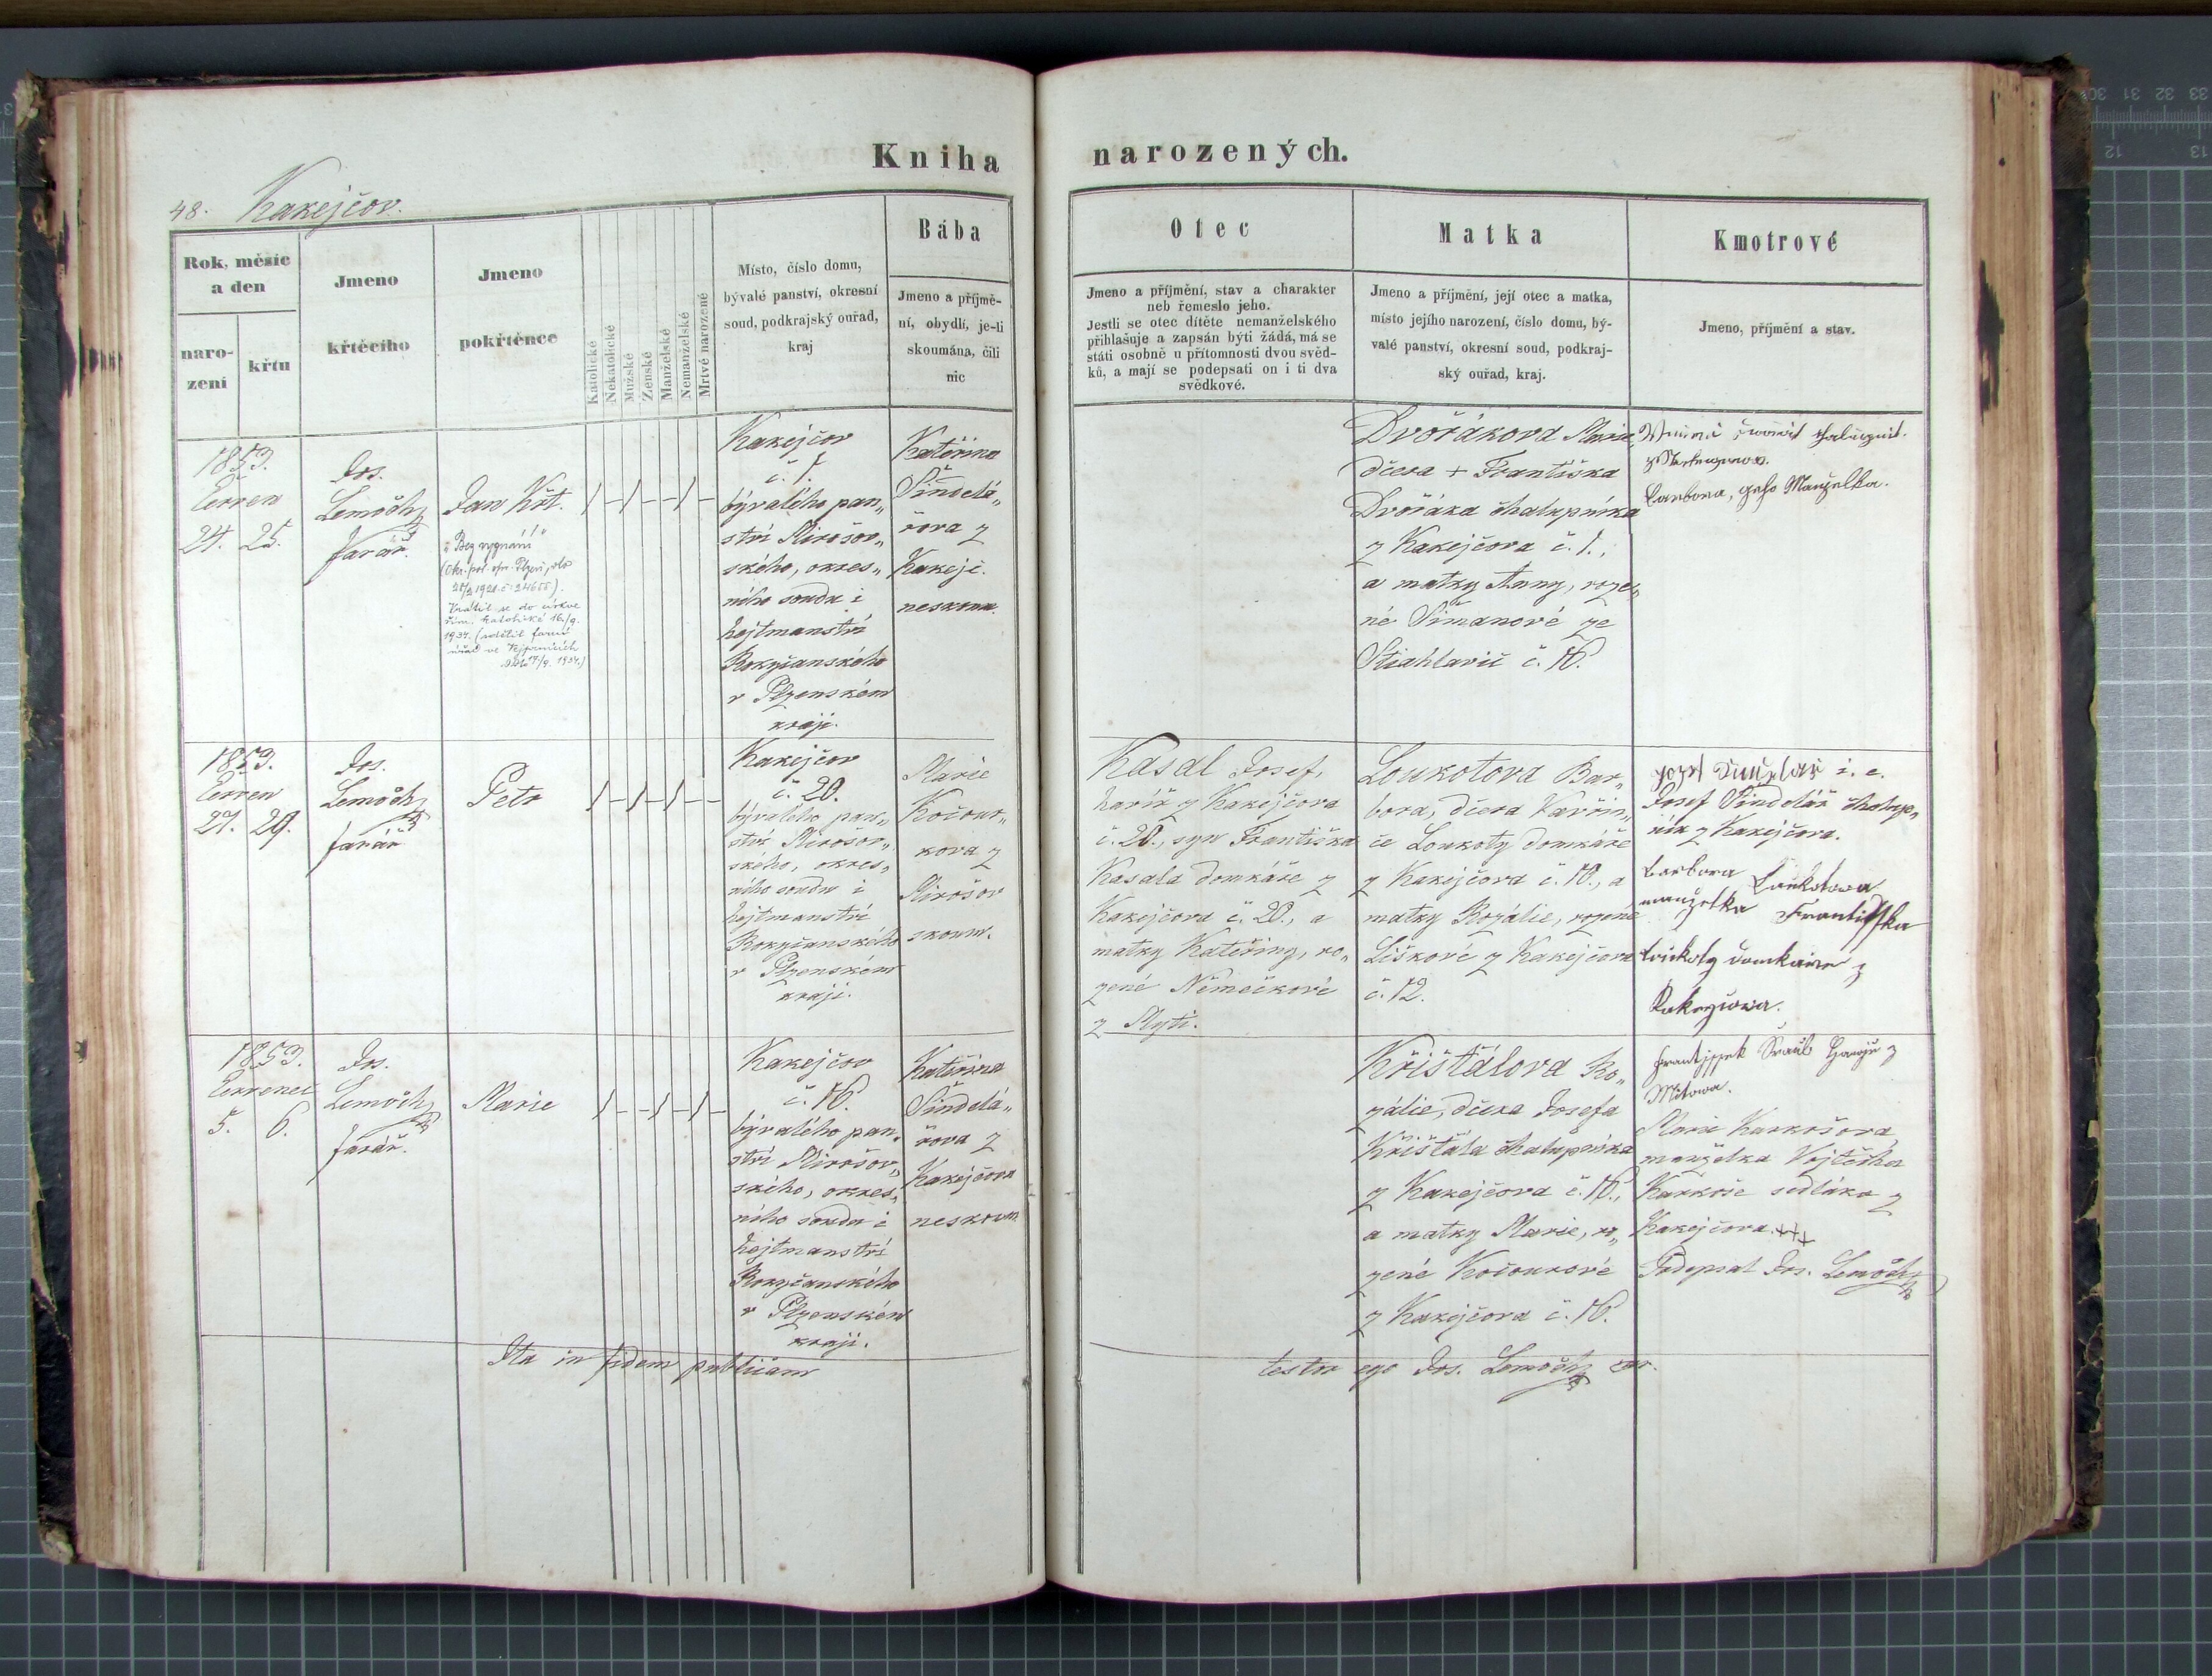 Kniha narozených.
48. Kakejčov.
Rok, měsíc
a den
naro-
zení
křtu
Jmeno
křtěcího
Jmeno
pokřtěnce
Katolické
Nekatolické
Mužské
Ženské
Manželské
Nemanželské
Mrtvě narozené
Místo, číslo domu,
bývalé panství, okresní
soud, podkrajský ouřad,
kraj
Bába
Jmeno a příjmě-
ní, obydlí, je-li
skoumána, čili
nic
Otec
Jmeno a příjmění, stav a charakter
neb řemeslo jeho.
Jestli se otec dítěte nemanželského
přihlašuje a zapsán býti žádá, má se
státi osobně u přítomnosti dvou svěd-
ků, a mají se podepsati on i ti dva
svědkové.
Matka
Jmeno a příjmění, její otec a matka,
místo jejího narození, číslo domu, bý-
valé panství, okresní soud, podkraj-
ský ouřad, kraj.
Kmotrové
Jmeno, příjmění a stav.
1853.
Červen
24. 25.
Jos.
Lemoch
farář.
Jan Křt.
"Bez vyznání"
Vrátil se do církve
řím. katolické 16./9.
1934. (sdělil farní
úřad
Kakejčov
č. 1.
bývalého pan„
ství Mirošov„
ského, okres„
ního soudu i
hejtmanství
Rokyčanského
v Plzenském
kraji.
Kateřina
Šindelá„
řova z
Kakejč.
neskoum.
Dvořákova Marie
dcera + Františka
Dvořáka chalupníka
z Kakejčova č. 1.,
a matky Anny, roze„
né Šimanové ze
Štiahlavic č. 16.
Barbora, geho Manzelka.
1853.
Červen
27. 29.
Jos.
Lemoch
farář
Petr
Kakejčov
č. 20.
bývalého pan„
ství Mirošov„
ského, okres„
ního soudu i
hejtmanství
Rokyčanského
v Plzenském
kraji.
Marie
Kočour„
kova z
Mirošov
skoum.
Kasal Josef,
havíř z Kakejčova
č. 20., syn Františka
Kasala domkáře z
Kakejčova č. 20., a
matky Kateřiny, ro„
zené Němečkové
z Myti.
Loukotova Bar„
bora, dcera Vavřin„
če Loukoty domkáře
z Kakejčova č. 10., a
matky Rozálie, rozené
Liškové z Kakejčova
č. 12.
i. e.
Josef Šindelář chalup„
ník z Kakejčova.
Barbora Laukotowa
manzelka Frantisska
laukoty domkaře z
Kakeyčowa.
1853.
Červenec
5. 6.
Jos.
Lemoch
farář.
Marie
Kakejčov
č. 16.
bývalého pan„
ství Mirošov„
ského, okres„
ního soudu i
hejtmanství
Rokyčanského
v Plzenském
kraji.
Kateřina
Šindelá„
řova z
Kakejčova
neskoum.
Křišťálova Ro„
zálie, dcera Josefa
Křišťála chalupníka
z Kakejčova č. 16.,
a matky Marie, ro„
zené Kočourové
z Kakejčova č. 16.
Frantjssek
Marie Karkošova
manželka Vojtěcha
Karkoše sedláka z
Kakejčova. +++
Podepsal Jos. Lemoch
Ita in fidem publicam
testor ego Jos. Lemoch